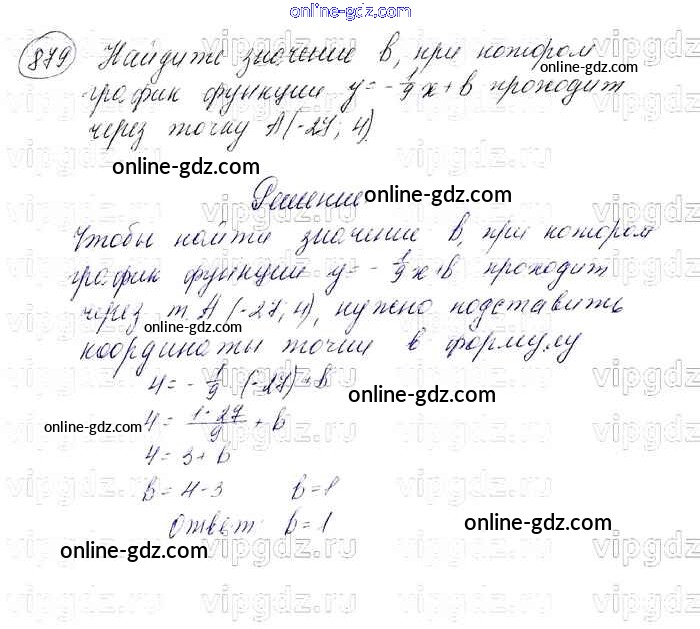 online-gdz.com
879 Найдите значение b, при котором
график функции y = -1/9 x + b проходит
через точку A(-27; 4).
online-gdz.com
Решение
online-gdz.com
Чтобы найти значение b, при котором
график функции y = -1/9 x + b проходит
через т. A (-27; 4), нужно подставить
online-gdz.com
координаты точки в формулу
4 = -1/9 · (-27) + b
online-gdz.com
4 = 1·27/9 + b
online-gdz.com
4 = 3 + b
b = 4 - 3 b = 1
Ответ: b = 1
online-gdz.com
online-gdz.com